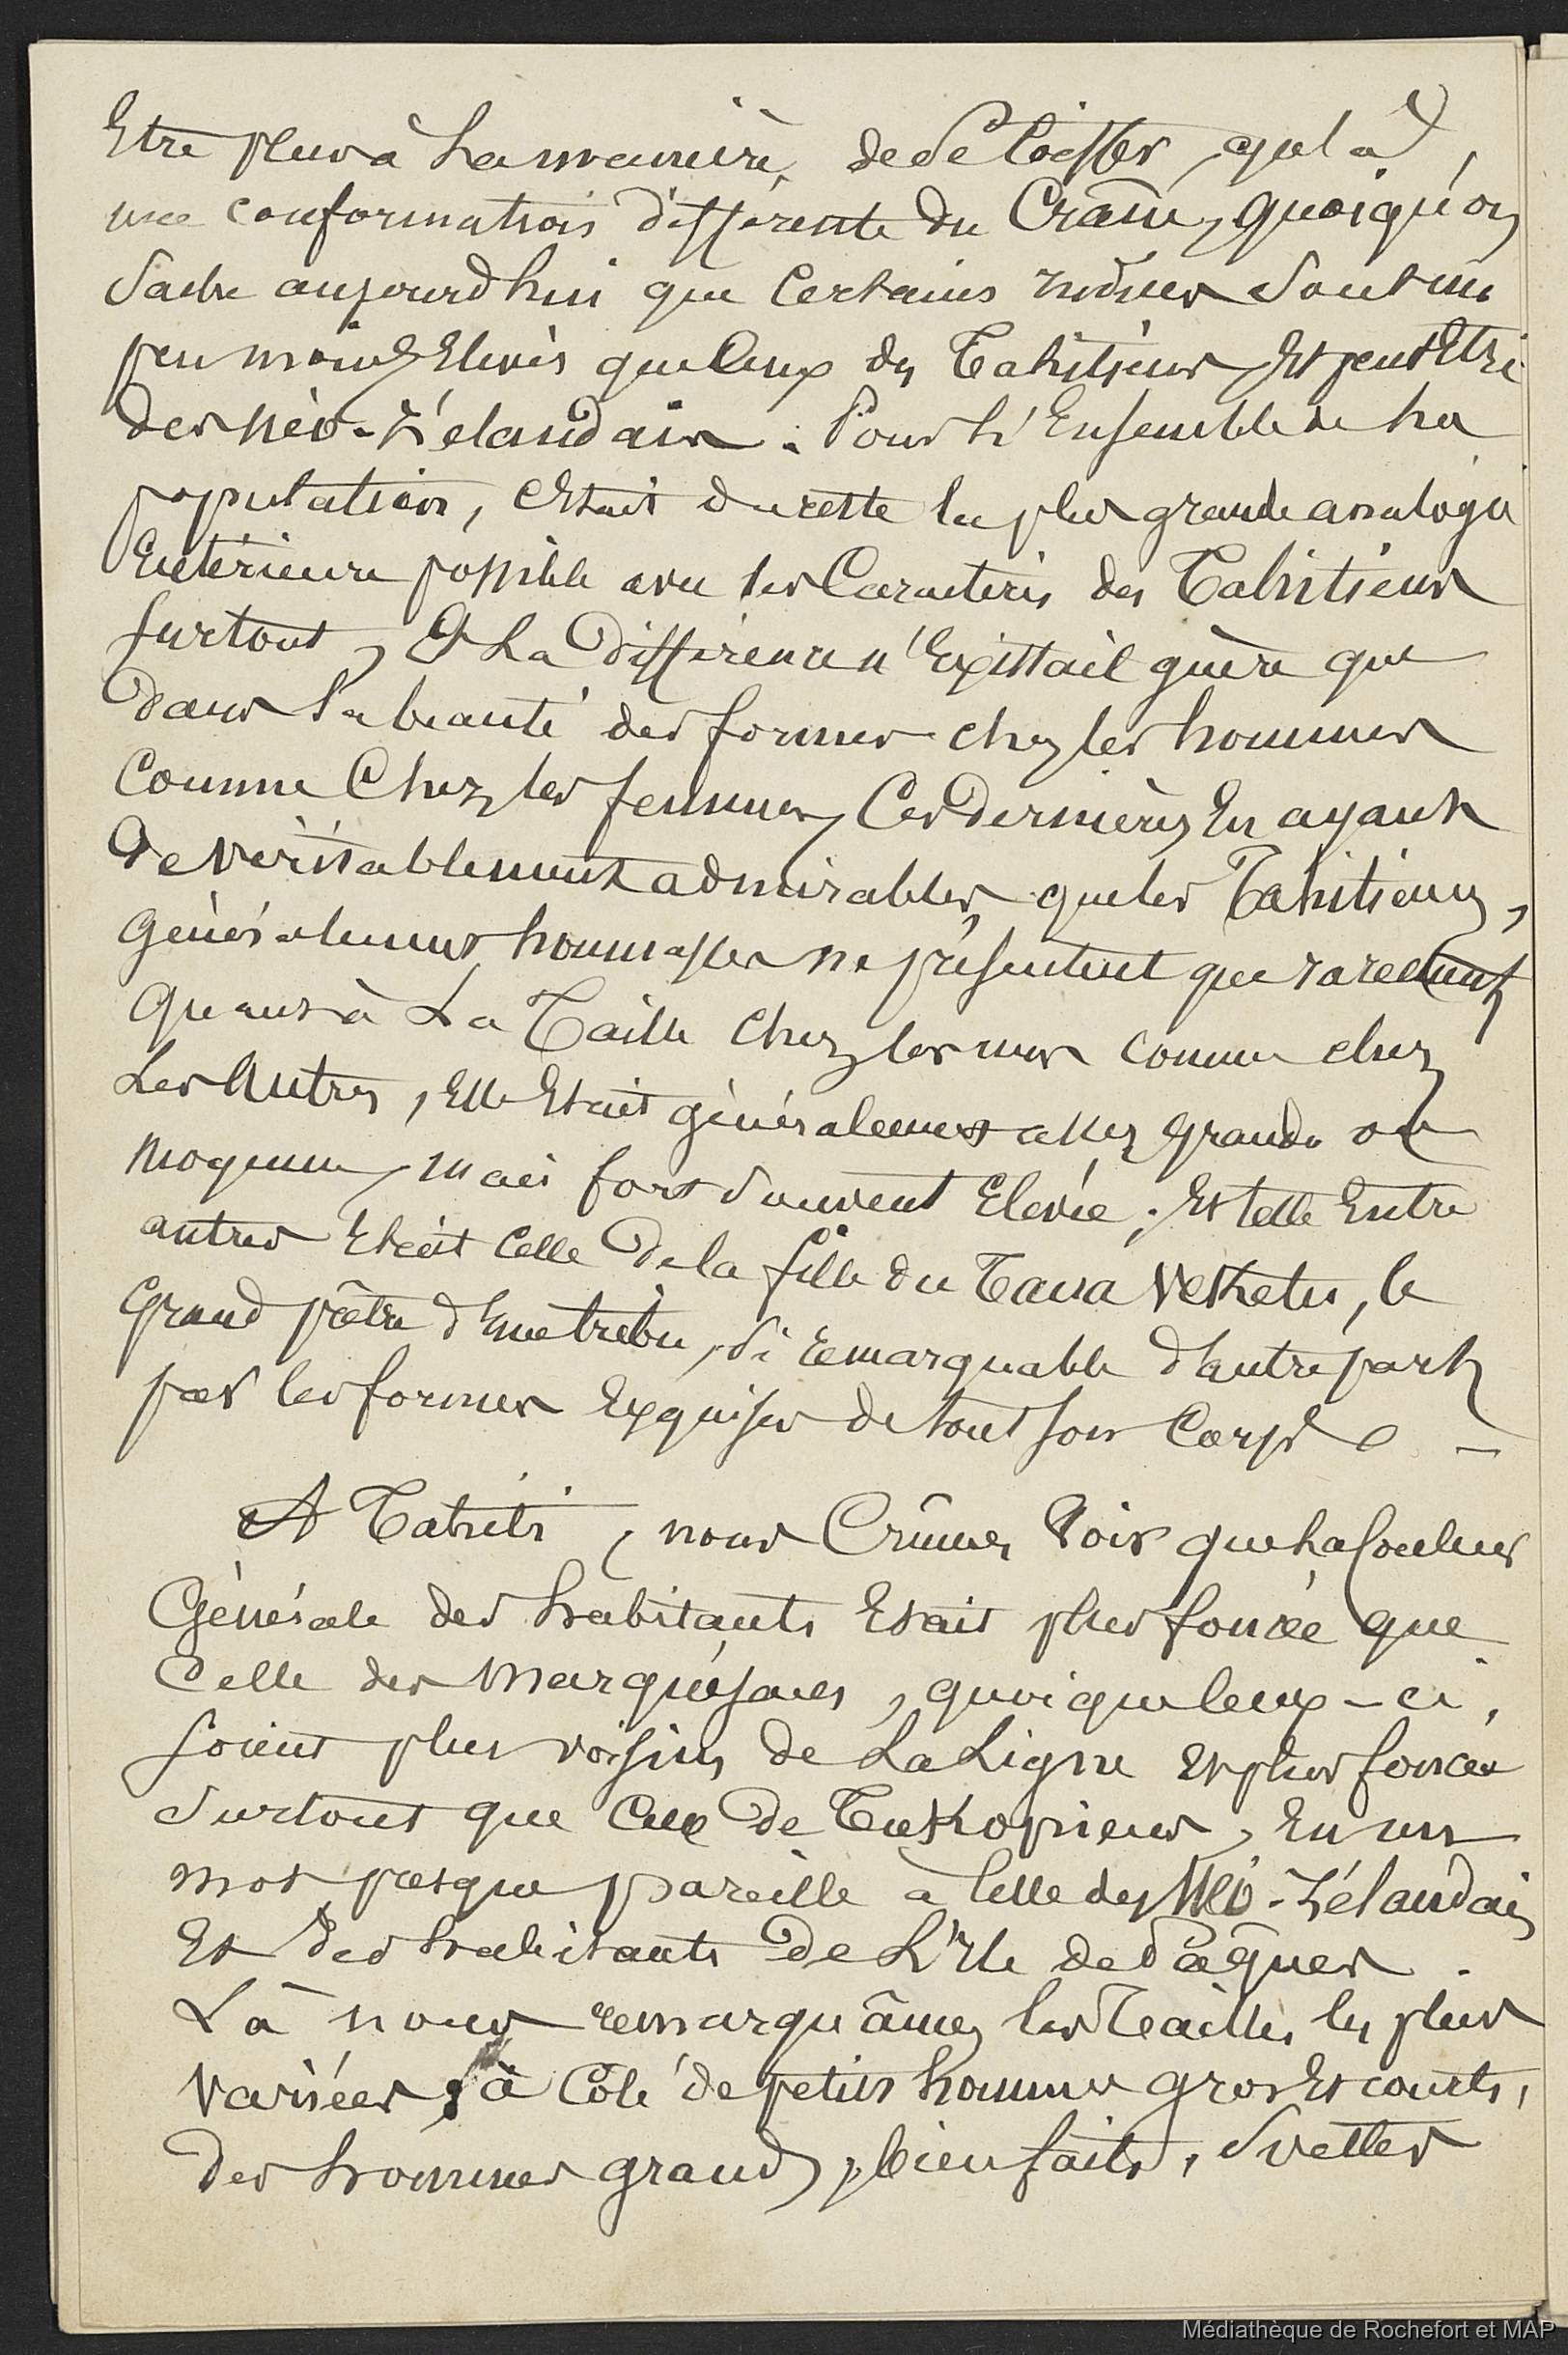 Etre plus à La manière de se Coiffer, qu'à
une conformation différente du Crâne, quoiqu'on
Sache aujourd'hui que Certains indices Sont un
peu moins Elevés que Ceux des Tahitiens, Et peut Etre
des Néo-Zélandais. Pour L'Ensemble de La
population, C'Etait du reste la plus grande analogie
Extérieure possible avec les Caractères des Tahitiens
surtout, Et La Différence n'Existait guère que
Dans la beauté des formes chez les hommes
Comme Chez les femmes, Ces Dernières En ayant
De véritablement admirables, que les Tahitiennes,
Généralement hommasses ne présentent que rarement
Quant à La Taille Chez les uns comme chez
Les Autres, Elle Etait généralement assez grande ou
moyenne, mais fort souvent Elevée ; Et telle Entre
autres Etait Celle De la fille du Taua Veketu, le
Grand prêtre d'une tribu, si remarquable d'autre part
par les formes Exquises de tout son Corps. -
A Tahiti, nous Crûmes Voir que La Couleur
Générale des habitants Etait plus foncée que
Celle des Marquésans, quoique Ceux-ci,
soient plus voisins de La Ligne Et plus foncée
Surtout que Celle De Tukopiens, En un
mot presque pareille à Celle des Néo-Zélandais
Et des habitants De L'Ile de Pâques.
Là nous remarquâmes les Tailles les plus
Variées ; à Côté de petits hommes gros Et courts,
Des hommes grands, bien faits, Sveltes
Médiathèque de Rochefort et MAP